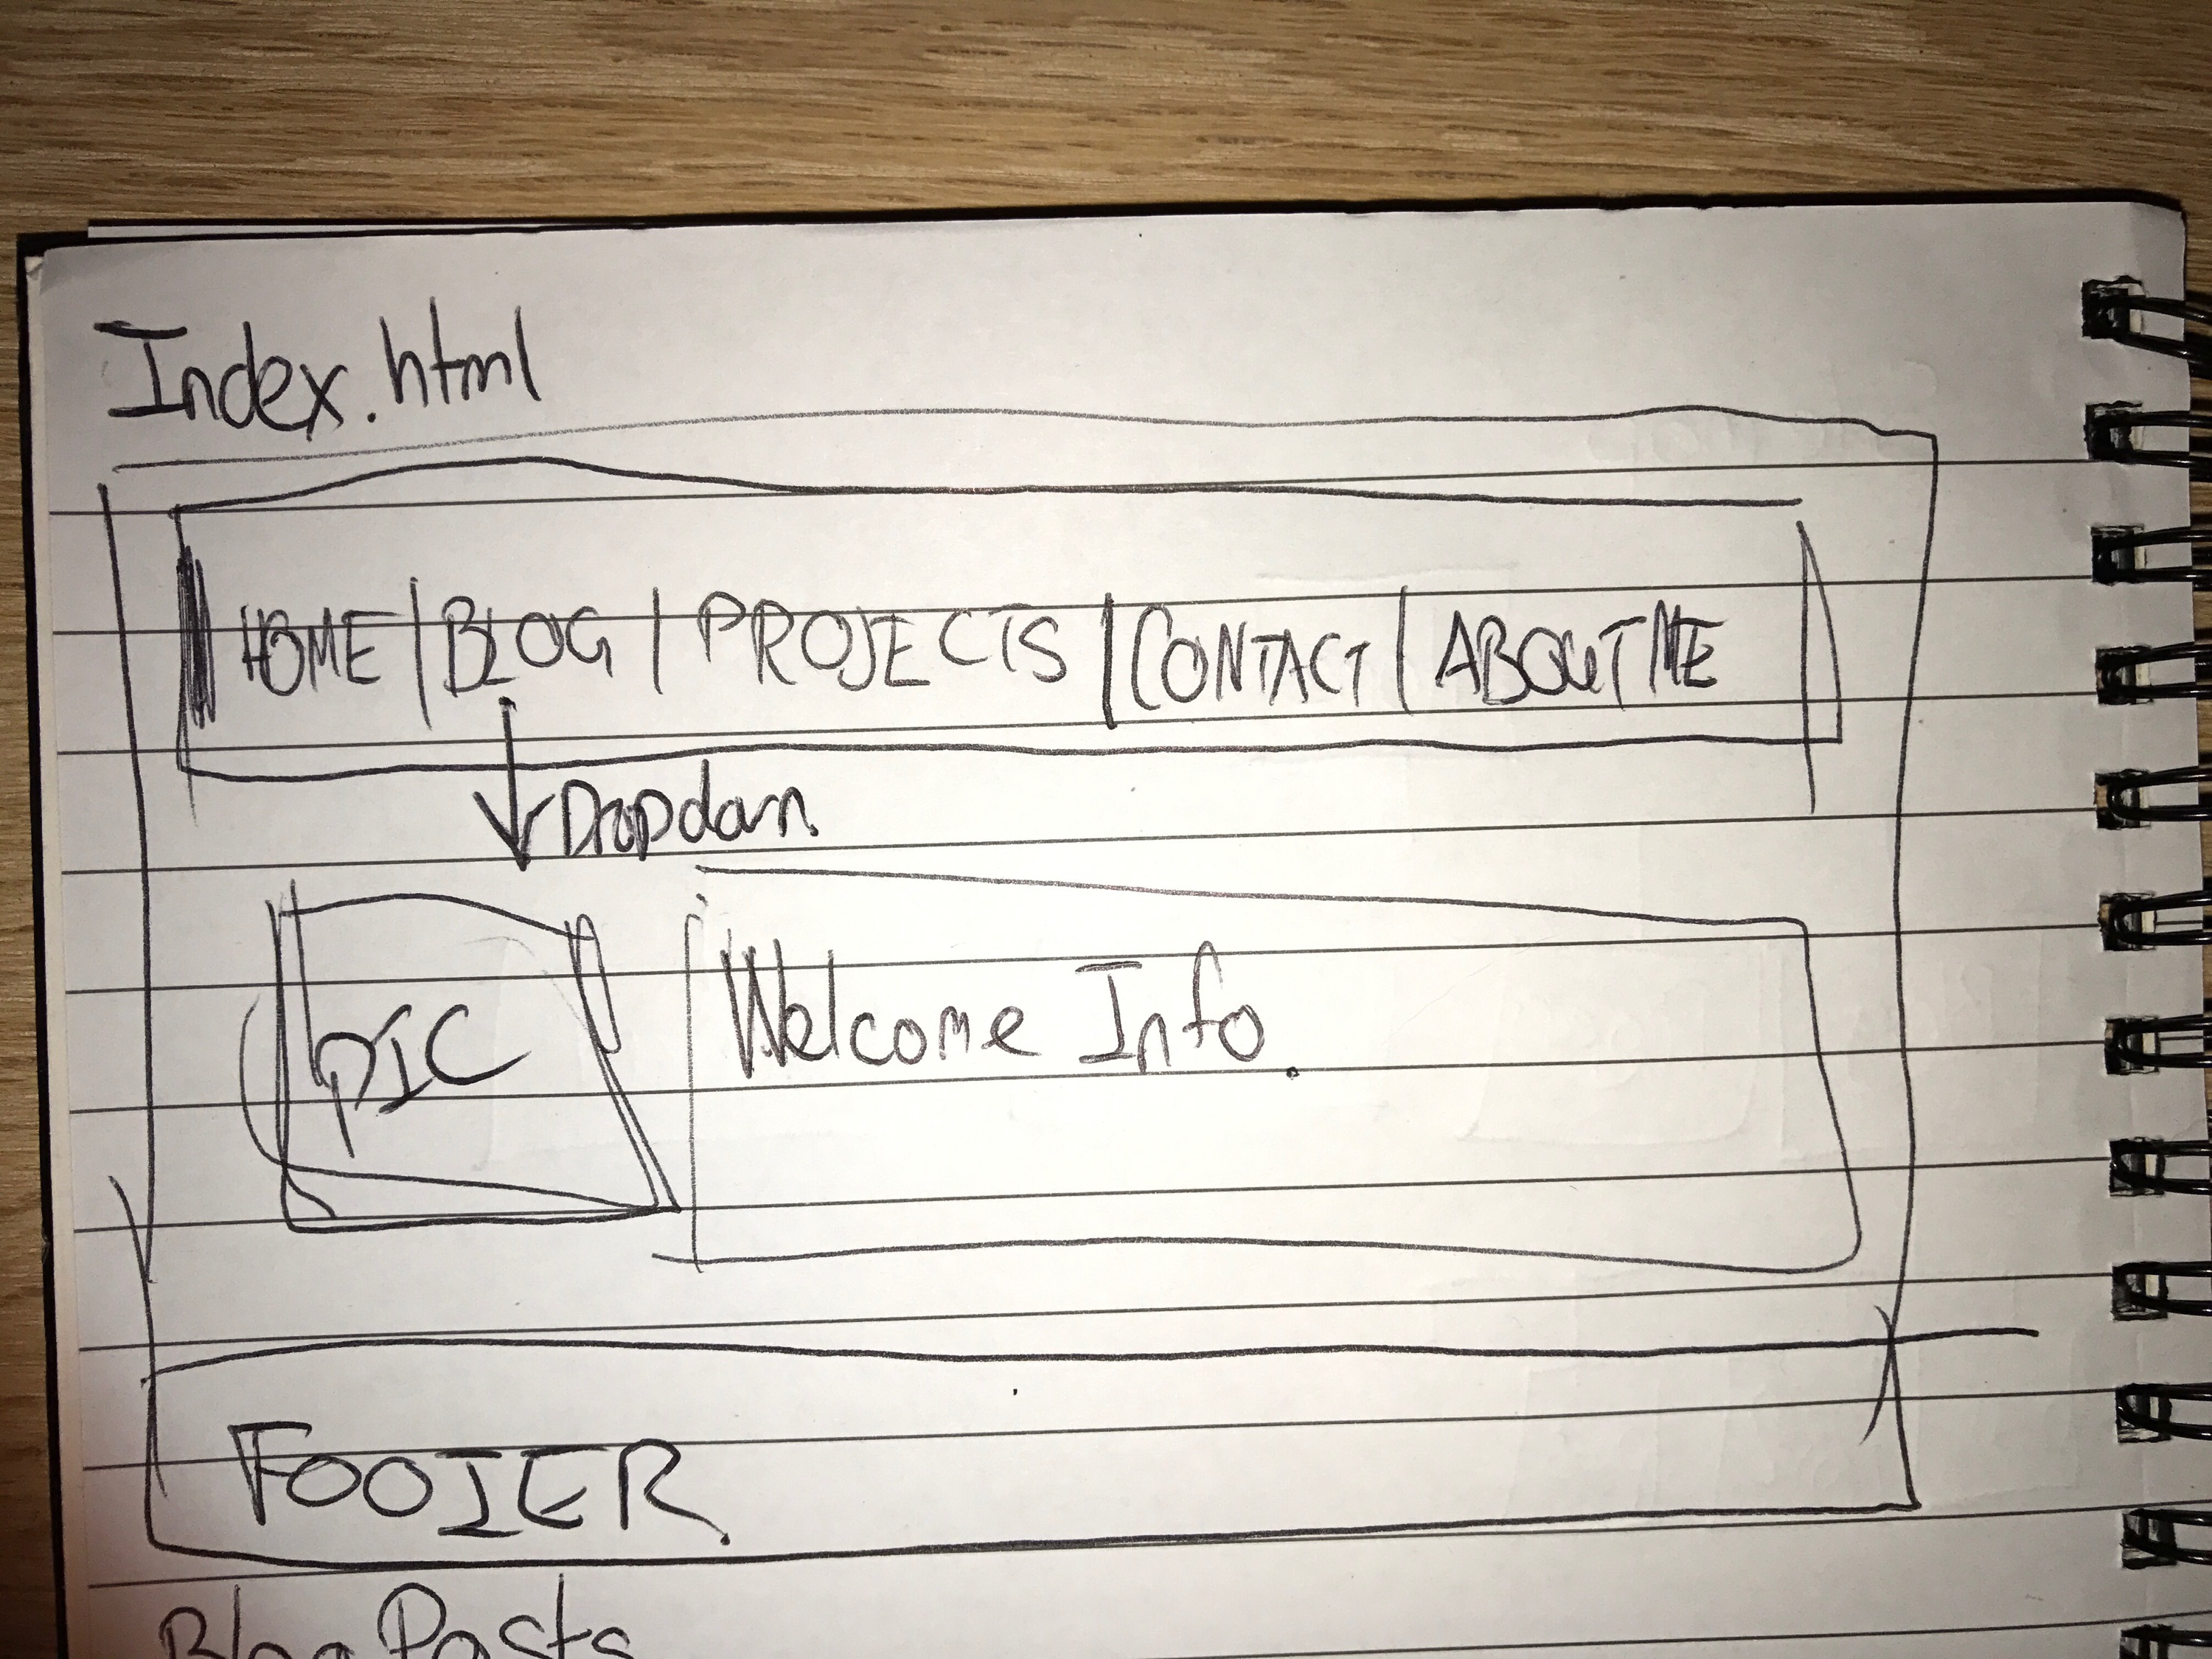 Index.html
HOME | BLOG | PROJECTS | CONTACT | ABOUT ME
Dropdown
PIC
Welcome Info.
FOOTER.
Blog Posts